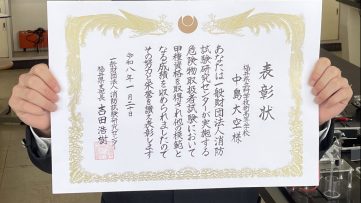 表彰状
福井県立科学技術高等学校
中島大空様
あなたは一般財団法人消防
試験研究センターが実施する
危険物取扱者試験において
甲種資格を取得され他の模範と
なる成績を収められましたので
その努力と栄誉を讃え表彰します
令和八年一月二十日
一般財団法人消防試験研究センター
福井県支部長 吉田浩樹